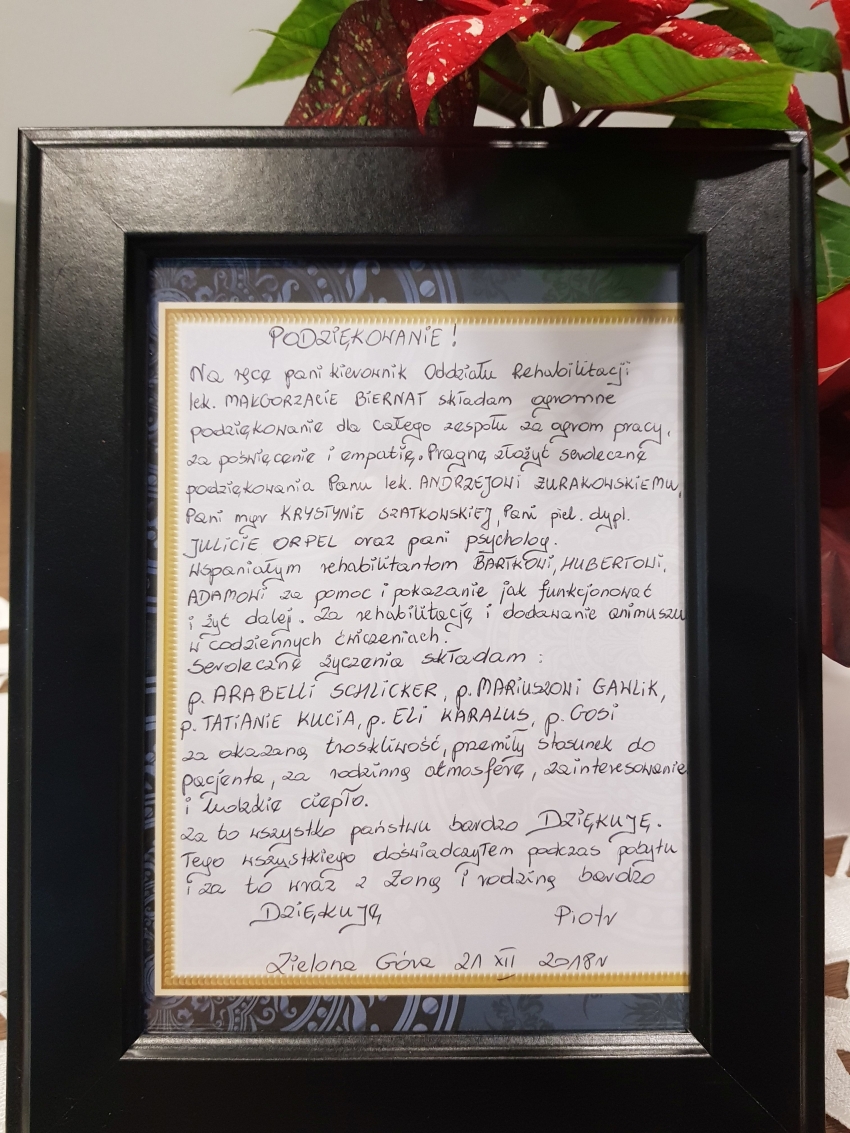 PODZIĘKOWANIE !
Na ręce pani kierownik Oddziału Rehabilitacji
lek. MAŁGORZACIE BIERNAT składam ogromne
podziękowanie dla całego zespołu za ogrom pracy,
za poświęcenie i empatię. Pragnę złożyć serdeczne
podziękowania Panu lek. ANDRZEJOWI ŻURAKOWSKIEMU,
Pani mgr KRYSTYNIE SZATKOWSKIEJ, Pani piel. dypl.
JULICIE ORPEL oraz pani psycholog.
Wspaniałym rehabilitantom BARTKOWI, HUBERTOWI,
ADAMOWI za pomoc i pokazanie jak funkcjonować
i żyć dalej. Za rehabilitację i dodawanie animuszu
w codziennych ćwiczeniach.
Serdeczne życzenia składam :
p. ARABELLI SCHLICKER, p. MARIUSZOWI GAWLIK,
p. TATIANIE KUCIA, p. ELI KARALUS, p. GOSI
za okazaną troskliwość, przemiły stosunek do
pacjenta, za rodzinną atmosferę, zainteresowanie
i ludzkie ciepło.
Za to wszystko państwu bardzo DZIĘKUJĘ.
Tego wszystkiego doświadczyłem podczas pobytu
i za to wraz z Żoną i rodziną bardzo
DZIĘKUJĘ Piotr
Zielona Góra 21 XII 2018r